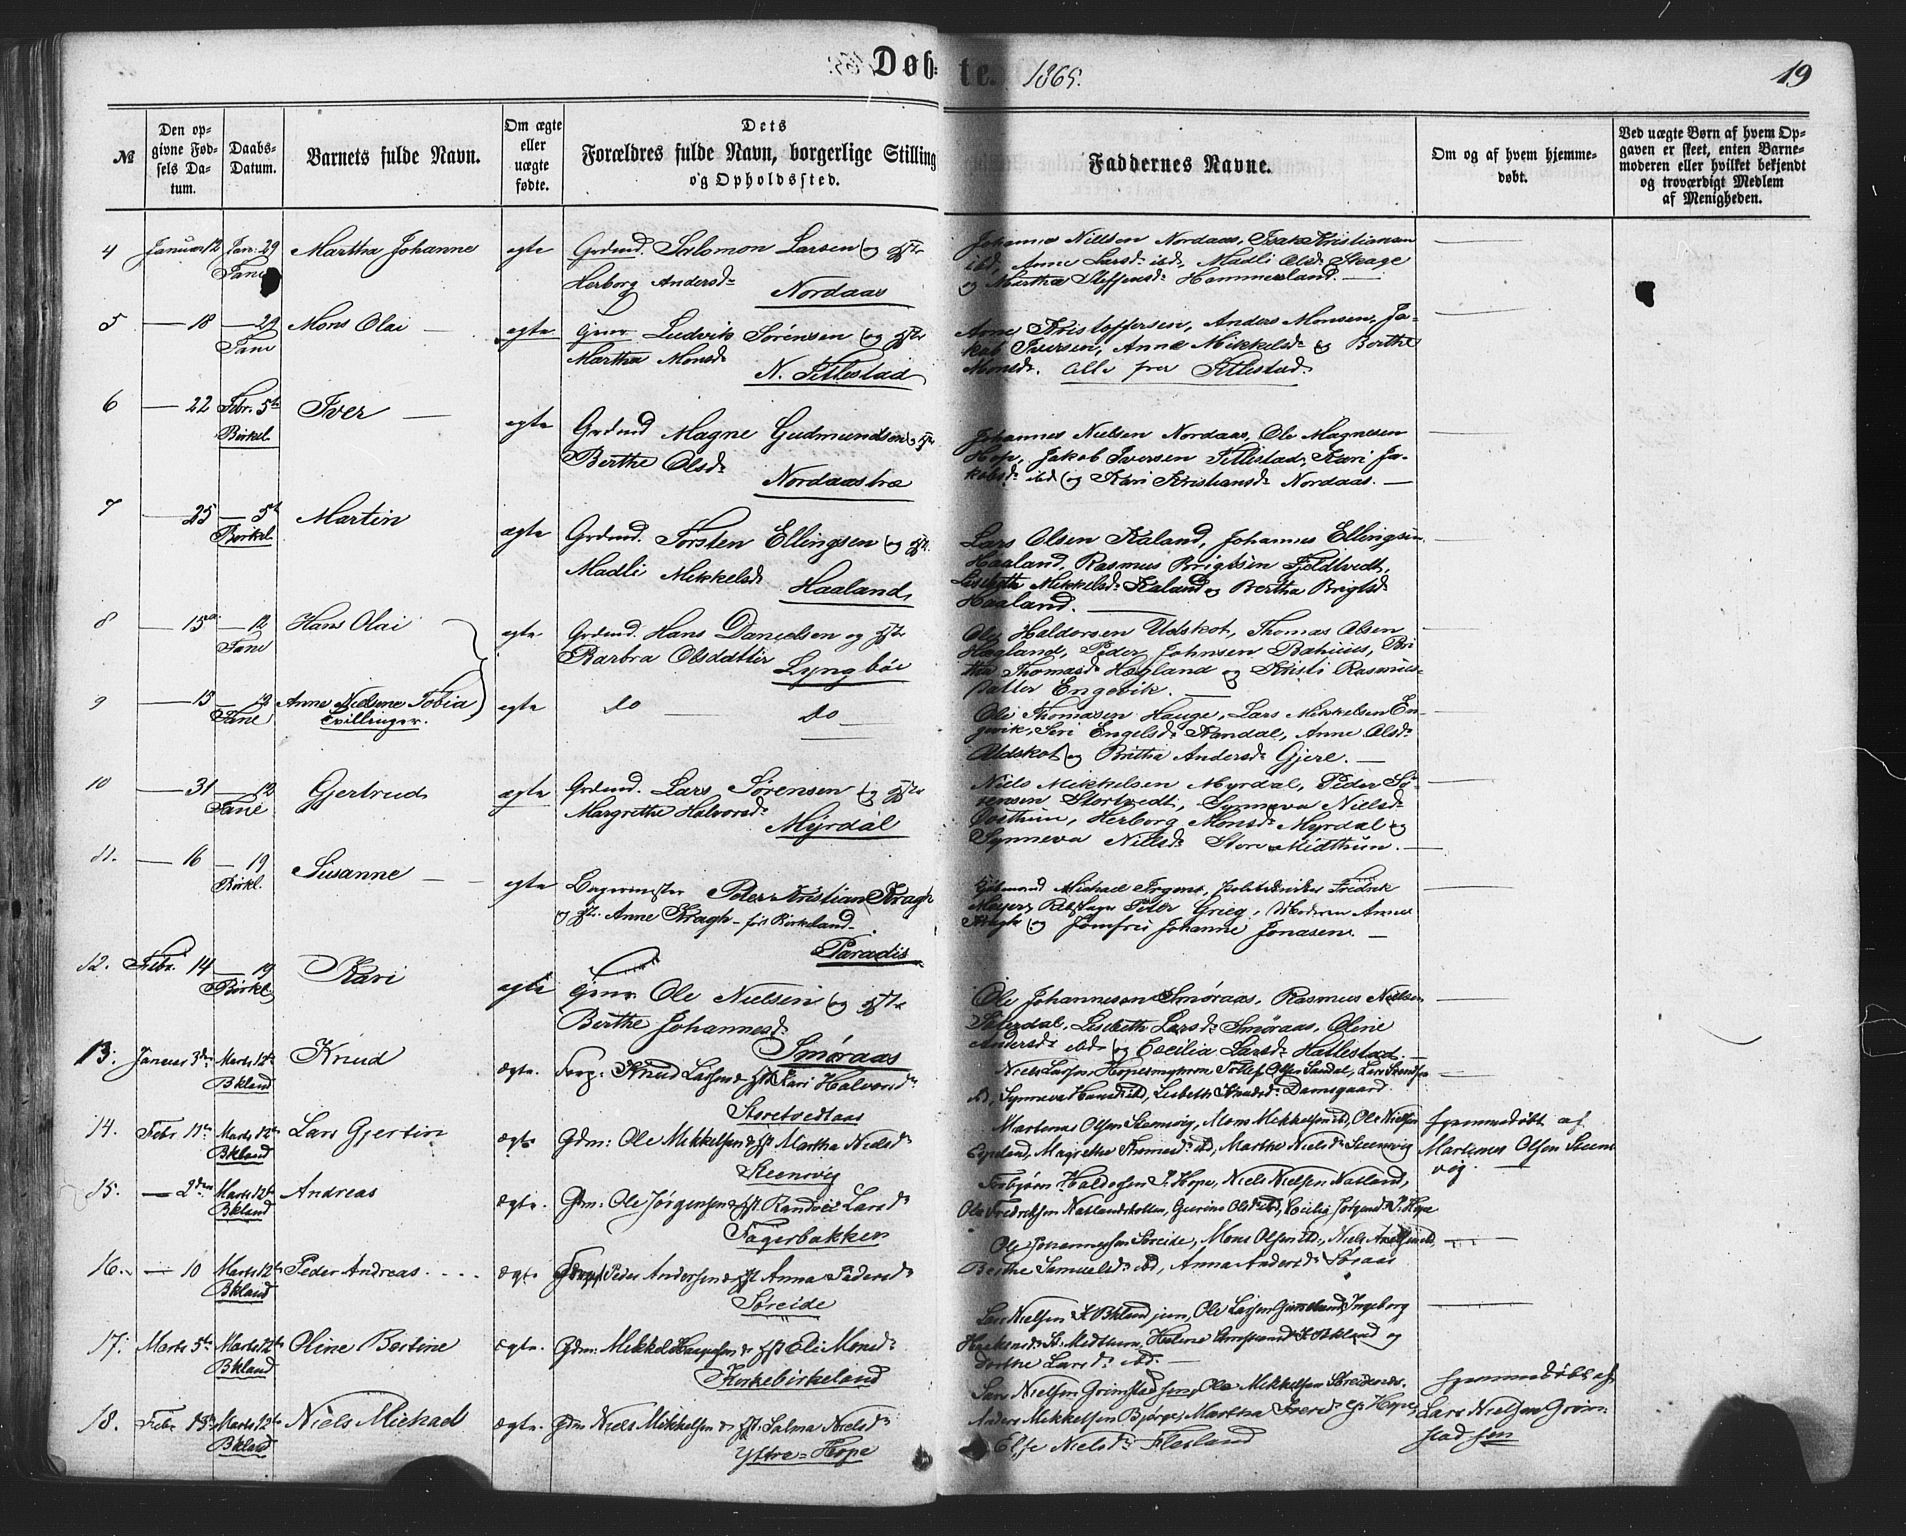 Døb-te. 1865.
19
№
Den opgivne Fødsels Datum.
Daabs-Datum.
Barnets fulde Navn.
Om ægte eller uægte fødte.
Dets Forældres fulde Navn, borgerlige Stilling og Opholdssted.
Faddernes Navne.
Om og af hvem hjemmedøbt.
Ved uægte Børn af hvem Opgaven er skeet, enten Barnemoderen eller hvilket bekjendt og troværdigt Medlem af Menigheden.
4 Januar 12 Jan: 29 Martha Johanne egte Grdmd. Salomon Larsen og Hstr
Fane Herborg Andersd.
Nordaas
Johannes Nillsen Nordaas, Isak Kristiansen
ibd, Anne Larsd. ibd, Madli Olsd. Skage
og Martha Steffensd. Hammersland. —
5 — 18 — 29 Mons Olai — egte Gmr Ludvik Sørensen og Hstr
Fane Martha Monsd.
N. Titlestad
Arne Kristoffersen, Anders Monsen, Ja-
kob Iversen, Anna Mikkelsd. og Berthe
Monsd. alle fra Titlestad.
6 — 22 Febr. 5te Iver — egte Grdmd Magne Gudmundsen og Hstr
Birkel. Berthe Olsd.
Nordaastræ
Johannes Nielsen Nordaas, Ole Magnesen
Hop, Jakob Iversen Titlestad, Kari Ja-
kobsd. ibd og Kari Kristiansd. Nordaas. —
7 — 25 — 5te Martin ægte Grdmd. Torsten Ellingsen og Hstr.
Birkel. Madli Mikkelsd.
Haaland
Lars Olsen Kaland, Johannes Ellingsen
Haaland, Rasmus Brigtsen Fjeldtvedt,
Lisbetha Mikkelsd. Kaland og Bertha Brigtsd.
Haaland.
8 — 15 — 12 Hans Olai egte Grdmd. Hans Danielsen og Hstr
Fane Barbra Olsdatter
Lyngbøe
Ole Haldorsen Udskot, Thomas Olsen
Hægland, Peder Johnsen Bahuus, Bri-
tha Thomasd. Hægland og Kristi Rasmus-
datter Engevik.
9 — 15 — 12 Anne Nielsine Tobia egte do — do —
Fane Tvillinger.
Ole Thomasen Hauge, Lars Mikkelsen En-
gevik, Siri Engelsd. Kandal, Anne Olsd.
Udskot og Britha Andersd. Gjere. —
10 — 31 — 12 Gjertrud ægte Grdmd. Lars Sørensen og Hstr
Fane Margrethe Halvorsd.
Myrdal
Niels Mikkelsen Myrdal, Peder Sø-
rensen Stortvedt, Synneva Nielsd.
Østhun, Herborg Monsd. Myrdal og
Synneva Nielsd. Store Midthun. —
11. — 16 — 19 Susanne — egte Bagermester Peter Kristian Kragh
Birkl. og Hstr. Anne Kragh — Birkeland
Paradis
Michael Irgens, Fredrik
Meyer, Peter Grieg, Moderen Anne
Kragh og Jomfru Johanne Jonasen. —
12. Febr. 14 — 19 Kari egte Gmr Ole Nielsen og Hstr
Birkel Berthe Johannesd.
Smøraas
Ole Johannesen Smøraas, Rasmus Nielsen
Sæterdal, Lisbeth Larsd. Smøraas, Oline
Andersd. ibd og Cecilia Larsd. Hatlestad. —
13. Januar 3die Marts 12te Knud ægte. Knud Larsen & Hst Kari Halvorsd.
Bkland Storetvedtaas
Niels Larsen, Tollef Olsen Sandal, Lars
ibd, Synneva Hansd. ibd, Lisbeth Knudsd. Damsgaard.
14. Febr 11te Marts 12te Lars Gjertin ægte Gdm: Ole Mikkelsen & Hst Martha Nielsd.
Bkland Steensvig
Martenes Olsen Steensvig, Mons Mikkelsen ibd, Ole Nielsen
Espeland, Magrethe Thomasd. ibd, Marthe Nielsd. Steensvig
hjemmedøbt af
Martenes Olsen Steens-
vig.
15. — 2den Marts 12te Andreas ægte. Gdm: Ole Jørgensen & Hst. Randvei Larsd.
Bkland Fagerbakken
Torbjørn Haldorsen I. Hope, Niels Nielsen Natland,
Ole Fredriksen Natlandsholten, Gurine Olsd. ibd, Cecilia Jørgensd. I. Hope
16. — 10 Marts 12te Peder Andreas. ægte Peder Andersen & Hst Anna Pedersd.
Bkland Søreide
Ole Johannessen Søreide, Mons Olsen ibd., Niels
Berthe Samuelsd. ibd, Anna Andersd. Søraas
17. Marts 5te Marts 12te Oline Bertine ægte. Gdm: Mikkel & Hst Eli Monsd.
Bkland Kirkebirkeland
Lars Nielsen K. Bkland jun, Ole Larsen Grimseland, Ingeborg
Haakonsd. St. Midthun, Helene K. Bkland og
Dorthe Larsd. ibd. —
18. Febr 13 Marts 12te Niels Michael ægte. Gdm Niels Mikkelsen & Hst. Salma Nielsd.
Bkland Ytre-Hope
Lars Nielsen Grimstad sen, Ole Mikkelsen Søreide,
Anders Mikkelsen Bjørge, Martha Iversd. Y. Hope,
Else Nielsd. Flesland
hjemmedøbt af
Lars Nielsen Grim-
stad sen